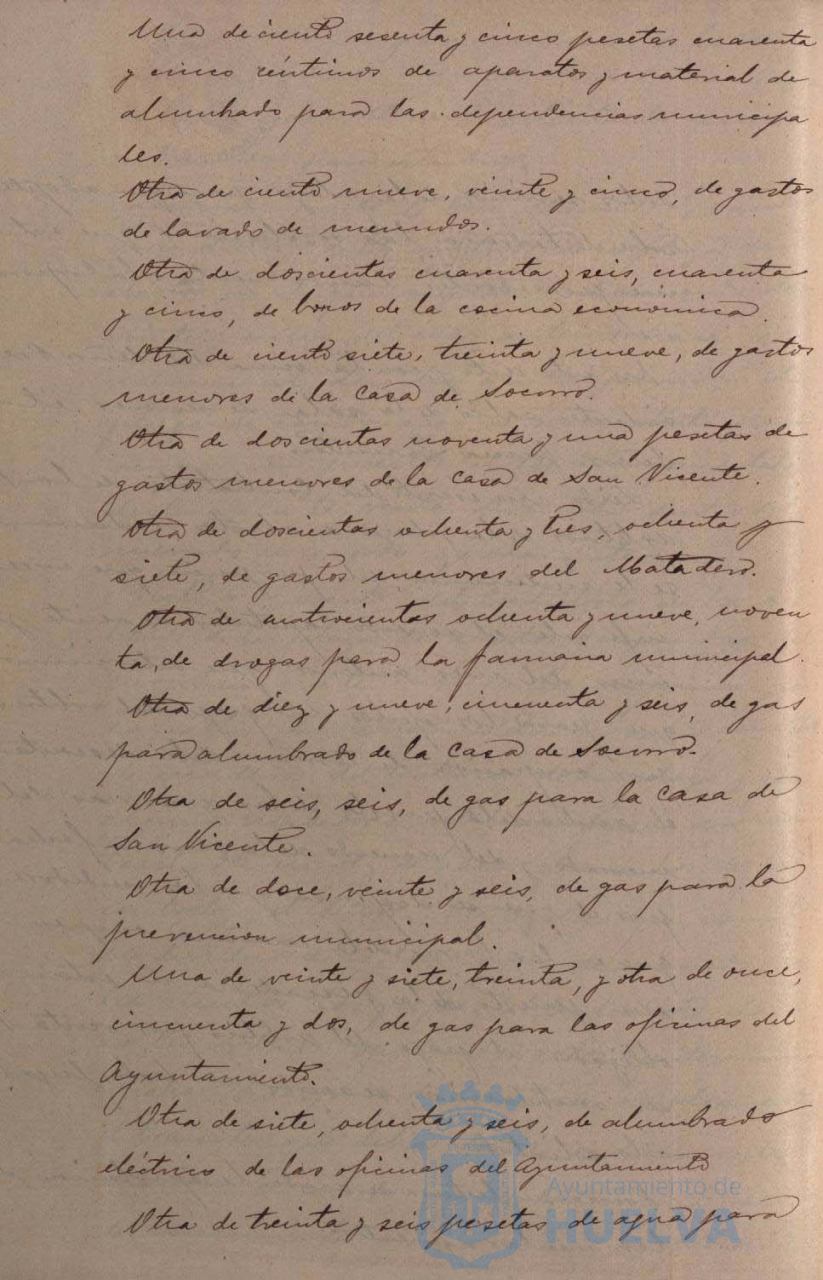 Una de ciento sesenta y cinco pesetas cuarenta
y cinco céntimos de aparatos y material de
alumbrado para las dependencias municipa
les.
Otra de ciento nueve, veinte y cinco, de gastos
de lavado de menudos.
Otra de doscientas cuarenta y seis, cuarenta
y cinco, de bonos de la cocina económica.
Otra de ciento siete, treinta y nueve, de gastos
menores de la Casa de Socorro.
Otra de doscientas noventa y una pesetas de
gastos menores de la Casa de San Vicente.
Otra de doscientas ochenta y tres, ochenta y
siete, de gastos menores del Matadero.
Otra de cuatrocientas ochenta y nueve, noven
ta, de drogas para la farmacia municipal.
Otra de diez y nueve, cincuenta y seis, de gas
para alumbrado de la Casa de Socorro.
Otra de seis, seis, de gas para la Casa de
San Vicente.
Otra de doce, veinte y seis, de gas para la
prevencion municipal.
Una de veinte y siete, treinta, y otra de once,
cincuenta y dos, de gas para las oficinas del
Ayuntamiento.
Otra de siete, ochenta y seis, de alumbrado
eléctrico de las oficinas del Ayuntamiento
Otra de treinta y seis pesetas de agua para
Ayuntamiento de
HUELVA